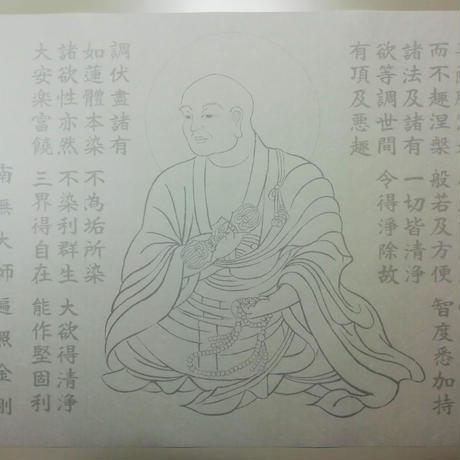 而不趣涅槃 般若及方便 智度悉加持
諸法及諸有 一切皆清浄
欲等調世間 令得浄除故
有頂及悪趣
調伏盡諸有
如蓮體本染 不為垢所染
諸欲性亦然 不染利群生 大欲得清浄
大安楽富饒 三界得自在 能作堅固利
南無大師遍照金剛